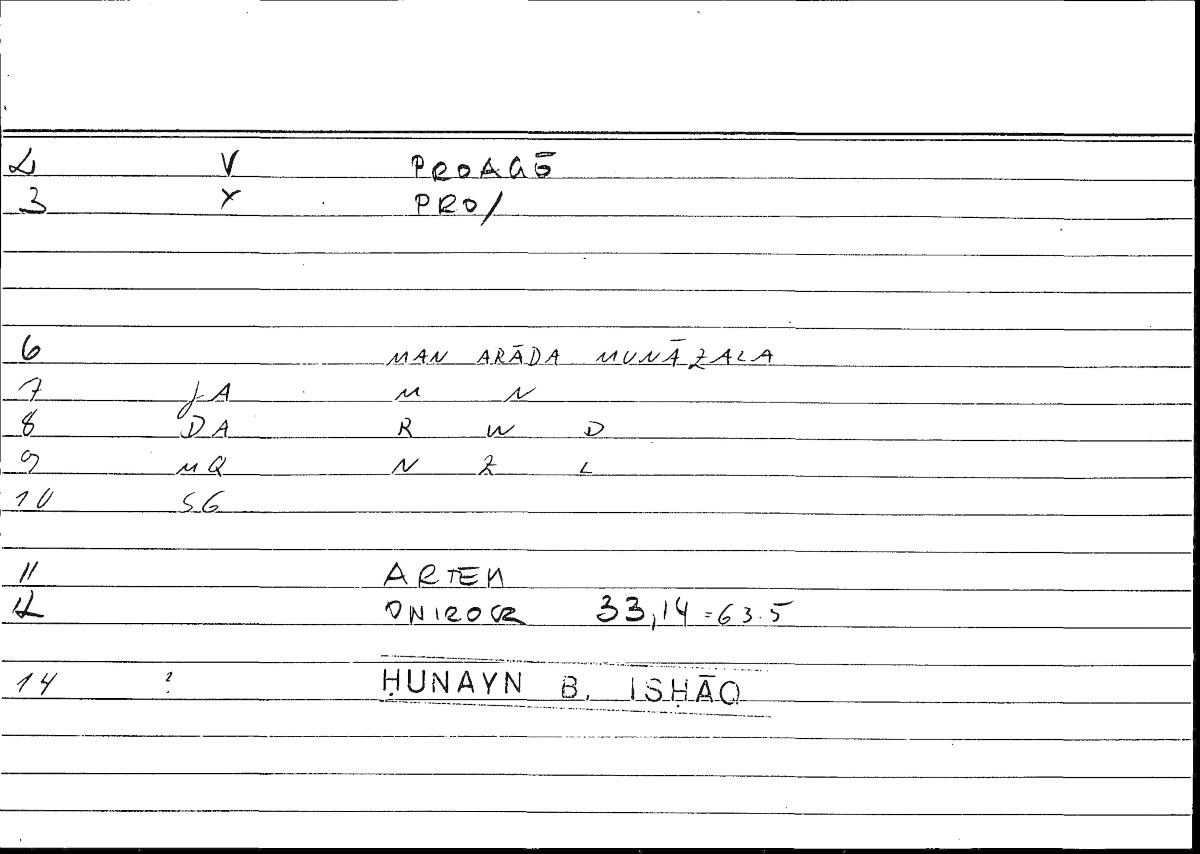 2 V PROAGŌ
3 X PRO/
6 MAN ARĀDA MUNĀZALA
7 JA M N
8 DA R W D
9 MQ N Z L
10 SG
11 ARTEM
12 ONIROCR 33,14 = 63.5
14 ? ḤUNAYN B. ISḤĀQ